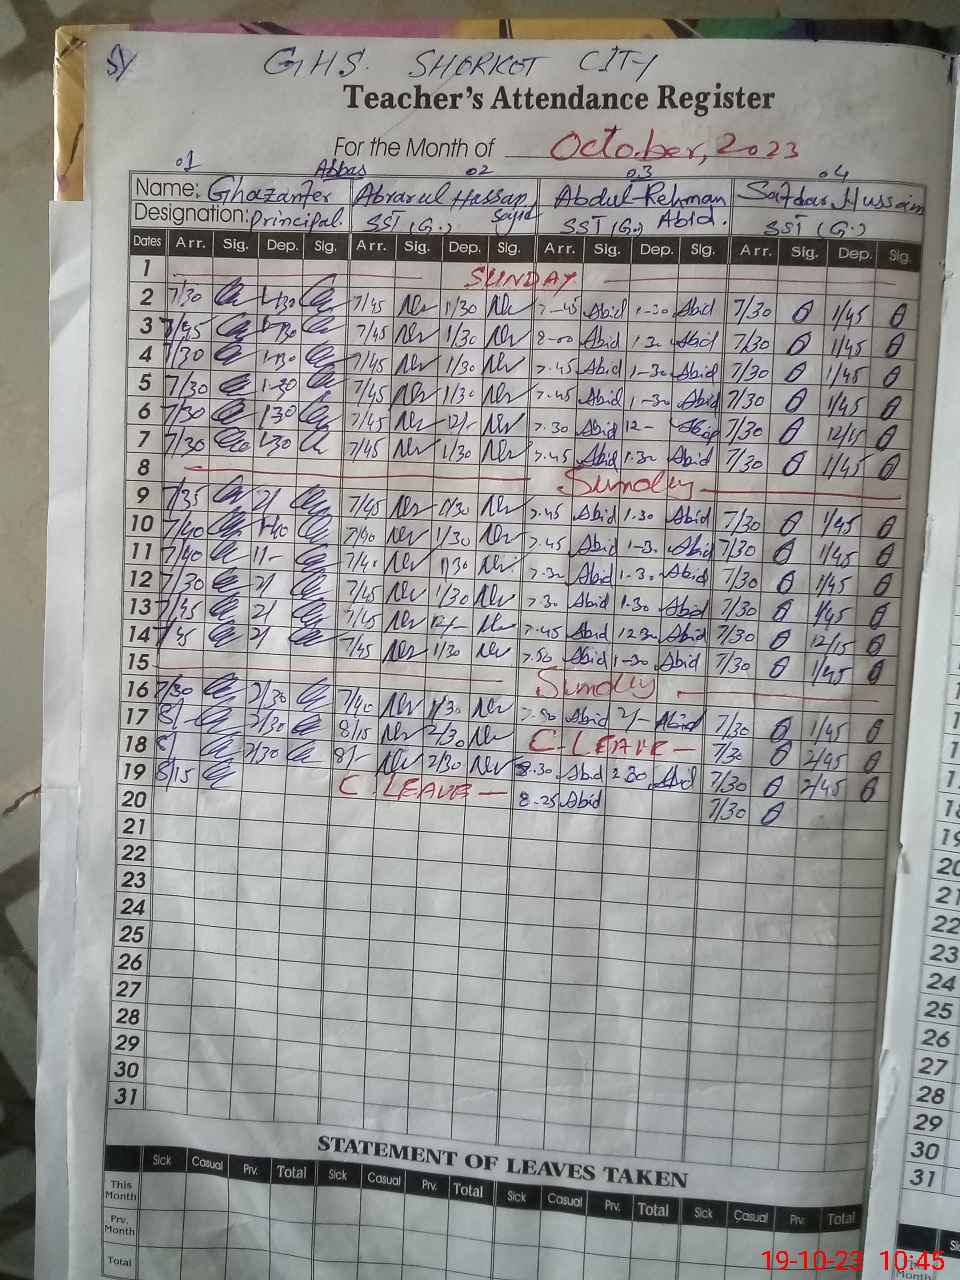 GHS. SHORKOT CITY
Teacher's Attendance Register
For the Month of October, 2023
01 02 03 04
Abbas
Name: Ghazanfer Abrarul Hassan Abdul Rehman Safdar Hussain
Sajid
Designation: Principal. SST (G.) SST (G.) Abid. SST (G.)
Dates Arr. Sig. Dep. Sig. Arr. Sig. Dep. Sig. Arr. Sig. Dep. Sig. Arr. Sig. Dep. Sig.
1 SUNDAY
2 7/30 1-30 7/45 1/30 7-45 Abid 1-30 Abid 7/30 1/45
3 7/45 1-30 7/45 1/30 8-00 Abid 1-30 Abid 7/30 1/45
4 7/30 1-30 7/45 1/30 7-45 Abid 1-30 Abid 7/30 1/45
5 7/30 1-30 7/45 1/30 7-45 Abid 1-30 Abid 7/30 1/45
6 7/30 7/45 12/- 7-30 Abid 12- 7/30 12/15
7 7/30 1-30 7/45 1/30 7-45 Abid 1-30 Abid 7/30 1/45
8 Sunday
9 7/35 2/ 7/45 1/30 7-45 Abid 1-30 Abid 7/30 1/45
10 7/40 7/40 1/30 7-45 Abid 1-30 Abid 7/30 1/45
11 7/40 11- 7/40 1/30 7-30 Abid 1-30 Abid 7/30 1/45
12 7/30 2/ 7/45 1/30 7-30 Abid 1-30 Abid 7/30 1/45
13 7/45 2/ 7/45 12/- 7-45 Abid 12-30 Abid 7/30 12/15
14 7/45 2/ 7/45 1/30 7-50 Abid 1-30 Abid 7/30 1/45
15 Sunday
16 7/30 2/30 7/40 1/30 7-50 Abid 2/- Abid 7/30 1/45
17 8/- 2/30 8/15 2/30 C. LEAVE 7/30 2/45
18 8/ 2/30 8/- 2/30 8-30 Abid 2-30 Abid 7/30 2/45
19 8/15 C. LEAVE 8-25 Abid 7/30
20
21
22
23
24
25
26
27
28
29
30
31
STATEMENT OF LEAVES TAKEN
Sick Casual Prv. Total Sick Casual Prv. Total Sick Casual Prv. Total Sick Casual Prv. Total
This Month
Prv. Month
Total
18
19
20
21
22
23
24
25
26
27
28
29
30
31
Month
19-10-23 10:45